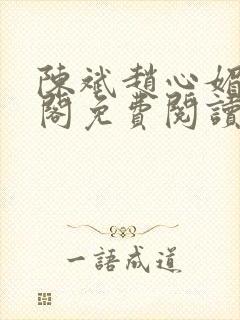 陳斌趙心媚
閣免費閱讀
一語成道